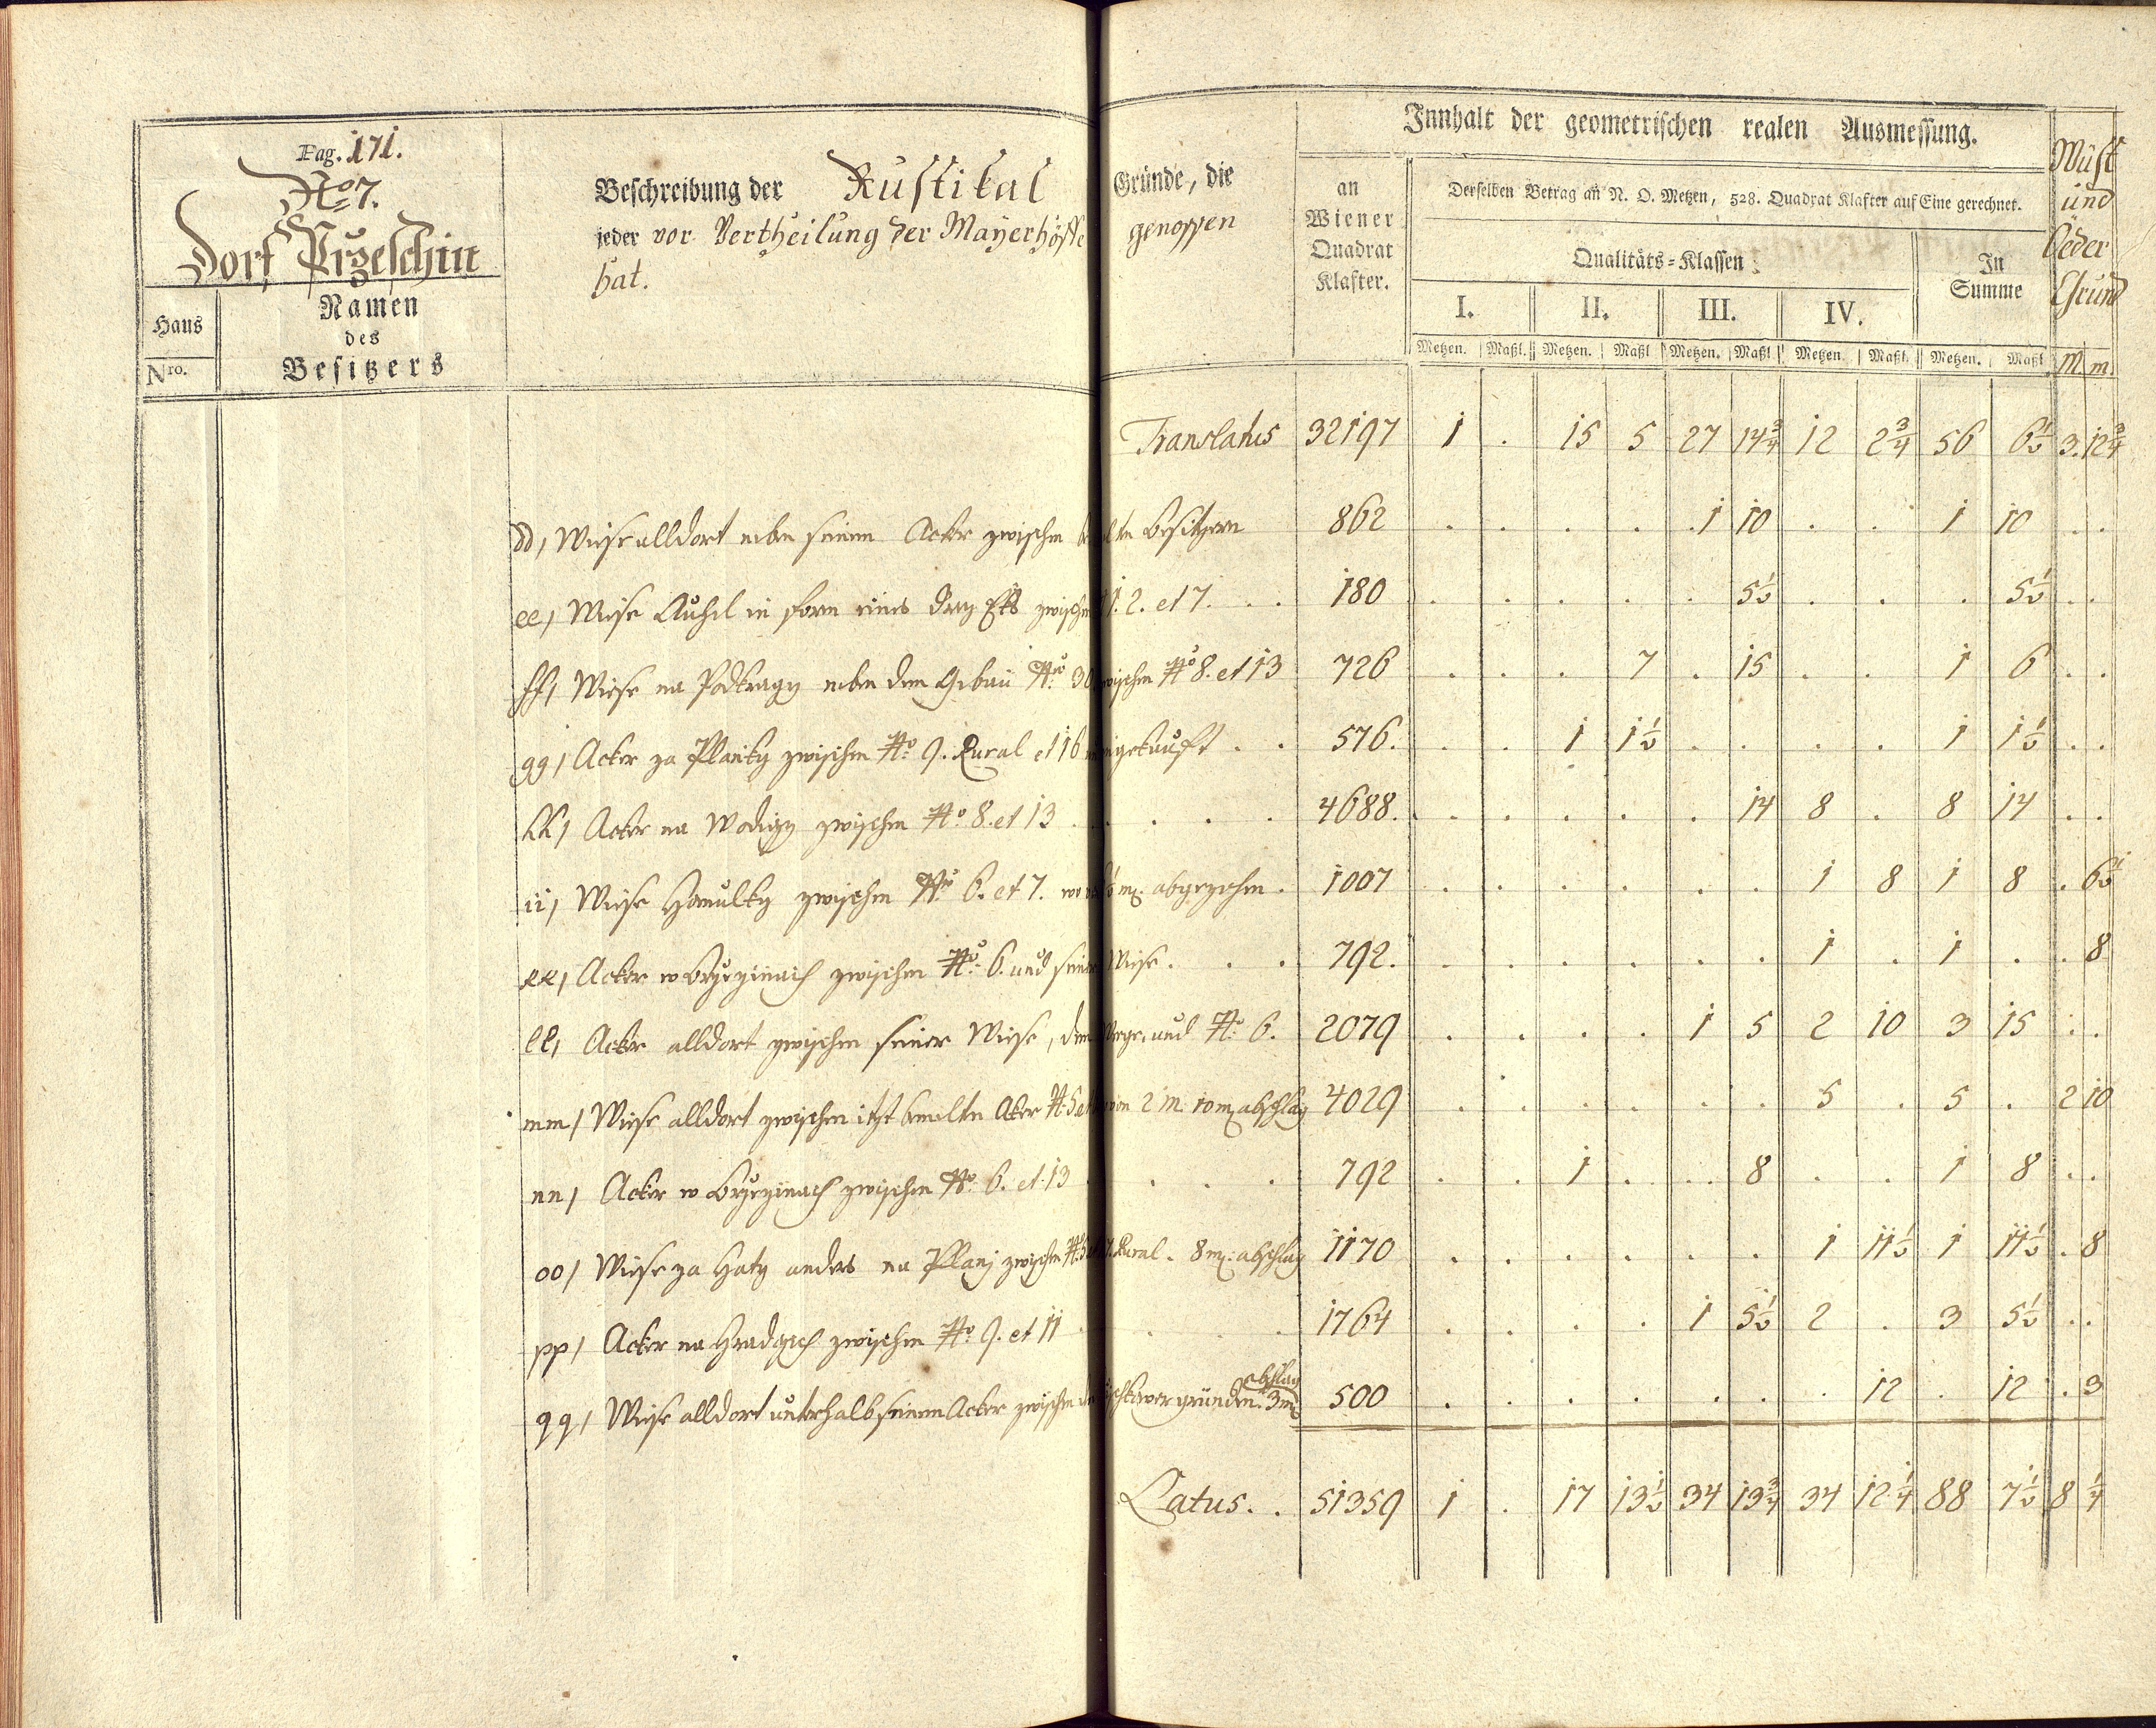 Pag. 171.
No 7.
Dorf Przeschin
Haus Nro.
Namen
des
Besitzers
Beschreibung der Rustikal Gründe, die
jeder vor Vertheilung der Mayerhöffe genossen
hat.
Innhalt der geometrischen realen Ausmessung.
an
Wiener
Quadrat
Klafter.
Derselben Betrag an N. O. Metzen, 528. Quadrat Klafter auf Eine gerechnet.
Qualitäts-Klassen
In
Summe
I. II. III. IV.
Metzen. Maßl. Metzen. Maßl Metzen. Maßl Metzen. Maßl. Metzen. Maßl
Wüst
und
öeder
Grund
M. m.
Translatus 32197 1 . 15 5 27 14 3/4 12 2 3/4 56 6 1/2 3. 12 3/4
dd, Wiese alldort neben seinem Acker zwischen Besitzern 862 . . . . 1 10 . . 1 10 . .
ee, Wiese in form eines drey Eks zwischen 2. et 7. . . 180 . . . . . 5 1/2 . . . 5 1/2 . .
ff, Wiese na neben dem Gebäu No 30 zwischen No 8. et 13 726 . . . 7 . 15 . . 1 6 . .
gg, Acker za Planky zwischen No 9. Rural et 16 . . 576. . . 1 1 1/2 . . . . 1 1 1/2 . .
hh, Acker na zwischen No 8. et 13 . . . . 4688. . . . . . 14 8 . 8 14 . .
ii, Wiese zwischen No 6. et 7. abgezohen . 1007 . . . . . . 1 8 1 8 . 6 1/2
kk, Acker w zwischen No 6. und seiner Wiese . . . 792. . . . . . . 1 . 1 . . 8
ll, Acker alldort zwischen seiner Wiese, dem Wege, und No 6. 2079 . . . . 1 5 2 10 3 15 . .
mm, Wiese alldort zwischen itzt Aker von 2 m 10 m abschlag 4029 . . . . . . 5 . 5 . 2 10
nn, Acker w zwischen No 6. et 13 . . . . 792 . . 1 . . 8 . . 1 8 . .
oo, Wiese za Haty anders na zwischen Rural . 8 m: abschlag 1170 . . . . . . 1 11 1/2 1 11 1/2 . 8
pp, Acker na zwischen No 9. et 11 . . . 1764 . . . . 1 5 1/2 2 . 3 5 1/2 . .
qq, Wiese alldort unterhalb seinem Acker zwischen gründen. 3 m abschlag 500 . . . . . . . 12 . 12 . 3
Latus. . 51359 1 . 17 13 1/2 34 13 3/4 34 12 1/4 88 7 1/2 8 1/4